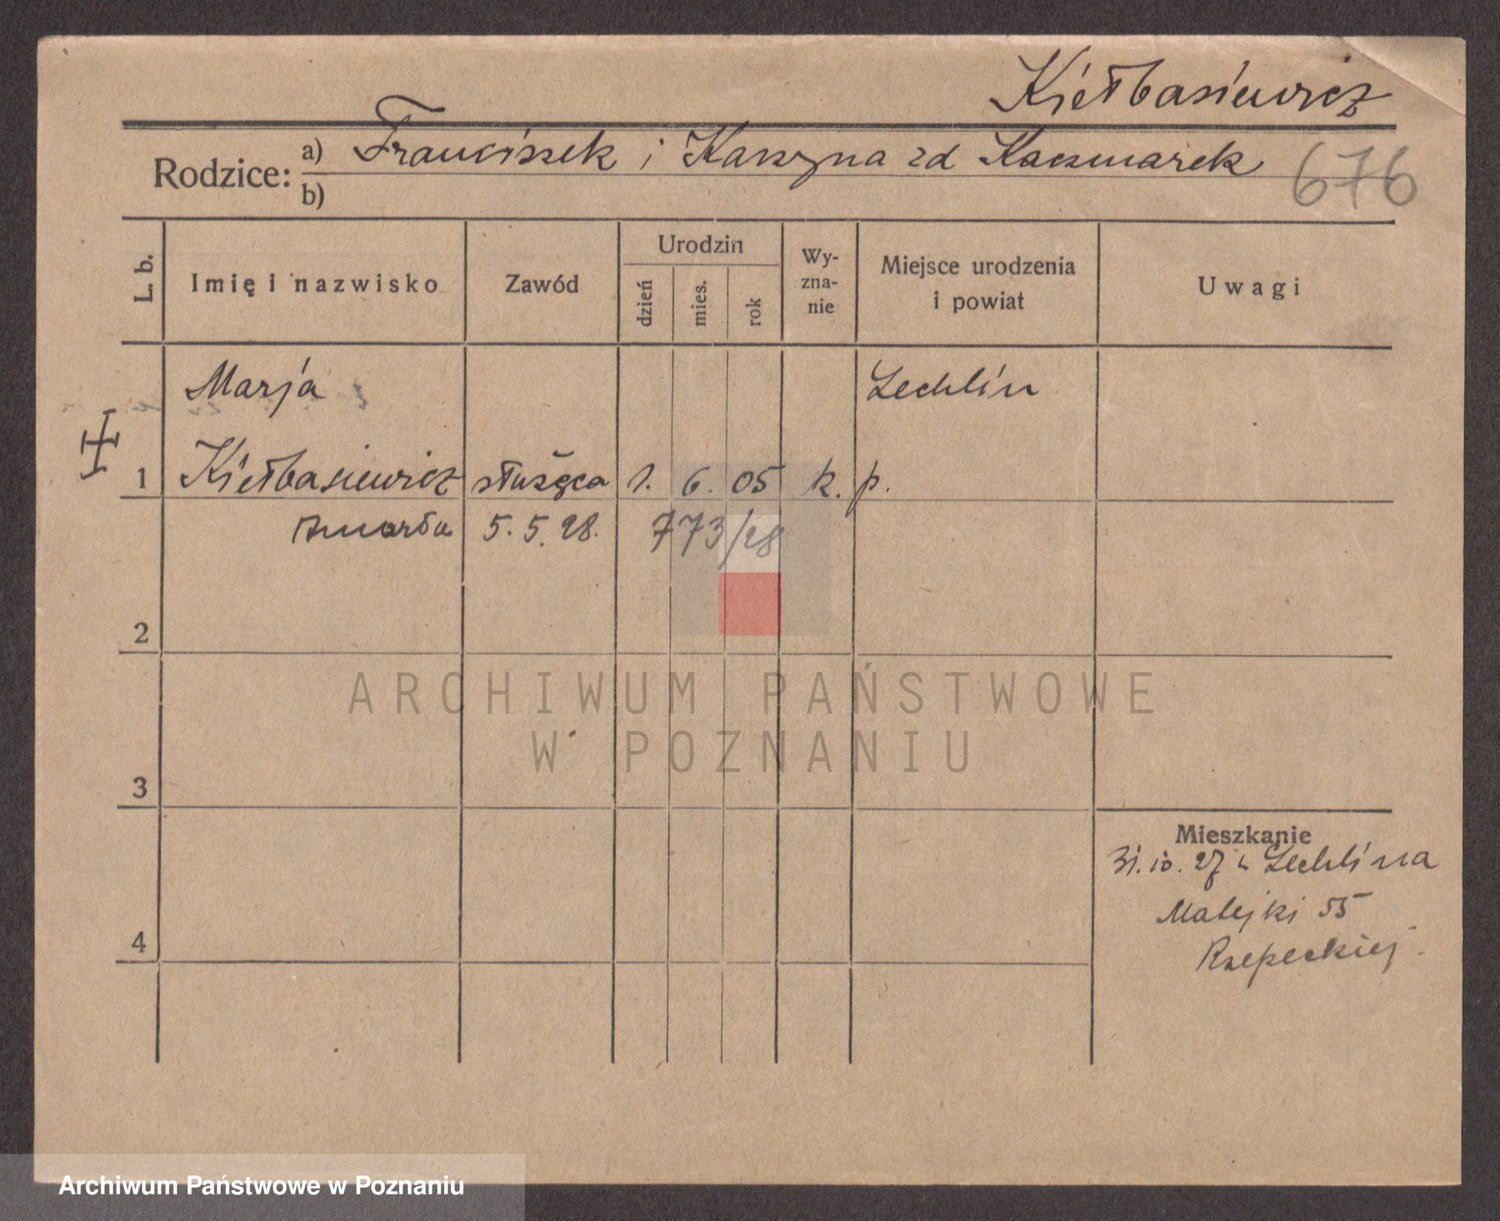 Kiełbasiewicz
Rodzice: a) Franciszek i Katarzyna zd Kaczmarek 676
b)
L. b. Imię i nazwisko Zawód Urodzin dzień mies. rok Wy-zna-nie Miejsce urodzenia i powiat Uwagi
Marja Lechlin
1 Kiełbasiewicz służąca 1. 6. 05 k. p.
zmarła 5. 5. 28. 773/28
2
ARCHIWUM PAŃSTWOWE
W POZNANIU
3
Mieszkanie
31.10.27 z Lechlina
Matejki 55
4
Rzepeckiej.
Archiwum Państwowe w Poznaniu